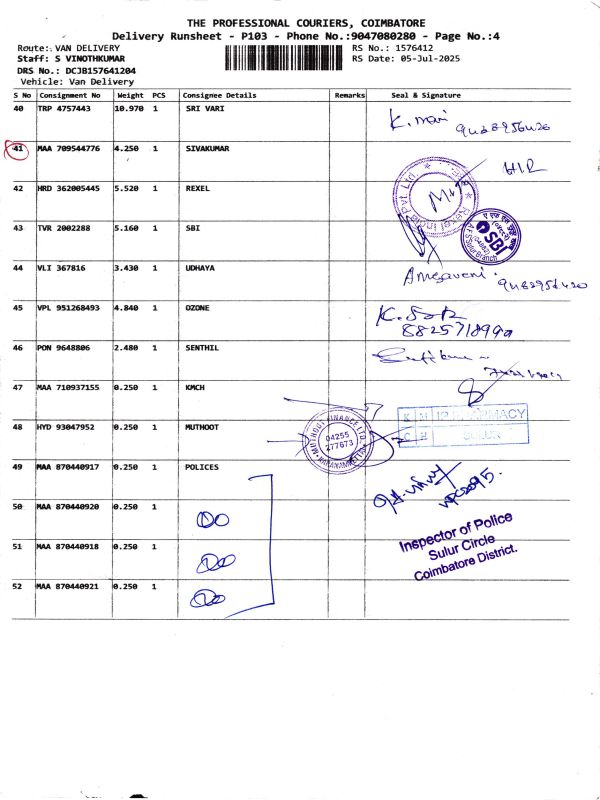 THE PROFESSIONAL COURIERS, COIMBATORE
Delivery Runsheet - P103 - Phone No.:9047080280 - Page No.:4
Route: VAN DELIVERY RS No.: 1576412
Staff: S VINOTHKUMAR RS Date: 05-Jul-2025
DRS No.: DCJB157641204
Vehicle: Van Delivery
S No Consignment No Weight PCS Consignee Details Remarks Seal & Signature
40 TRP 4757443 10.970 1 SRI VARI
K. mani
41 MAA 709544776 4.250 1 SIVAKUMAR
42 HRD 362005445 5.520 1 REXEL
Pvt. Ltd.
43 TVR 2002288 5.160 1 SBI
SBI
44 VLI 367816 3.430 1 UDHAYA
45 VPL 951268493 4.840 1 OZONE
46 PON 9648806 2.480 1 SENTHIL
47 MAA 710937155 0.250 1 KMCH
K M
C H SULUR
48 HYD 93047952 0.250 1 MUTHOOT
MUTHOOT FINANCE LTD.
04255
277673
49 MAA 870440917 0.250 1 POLICES
50 MAA 870440920 0.250 1
51 MAA 870440918 0.250 1
52 MAA 870440921 0.250 1
Inspector of Police
Sulur Circle
Coimbatore District.